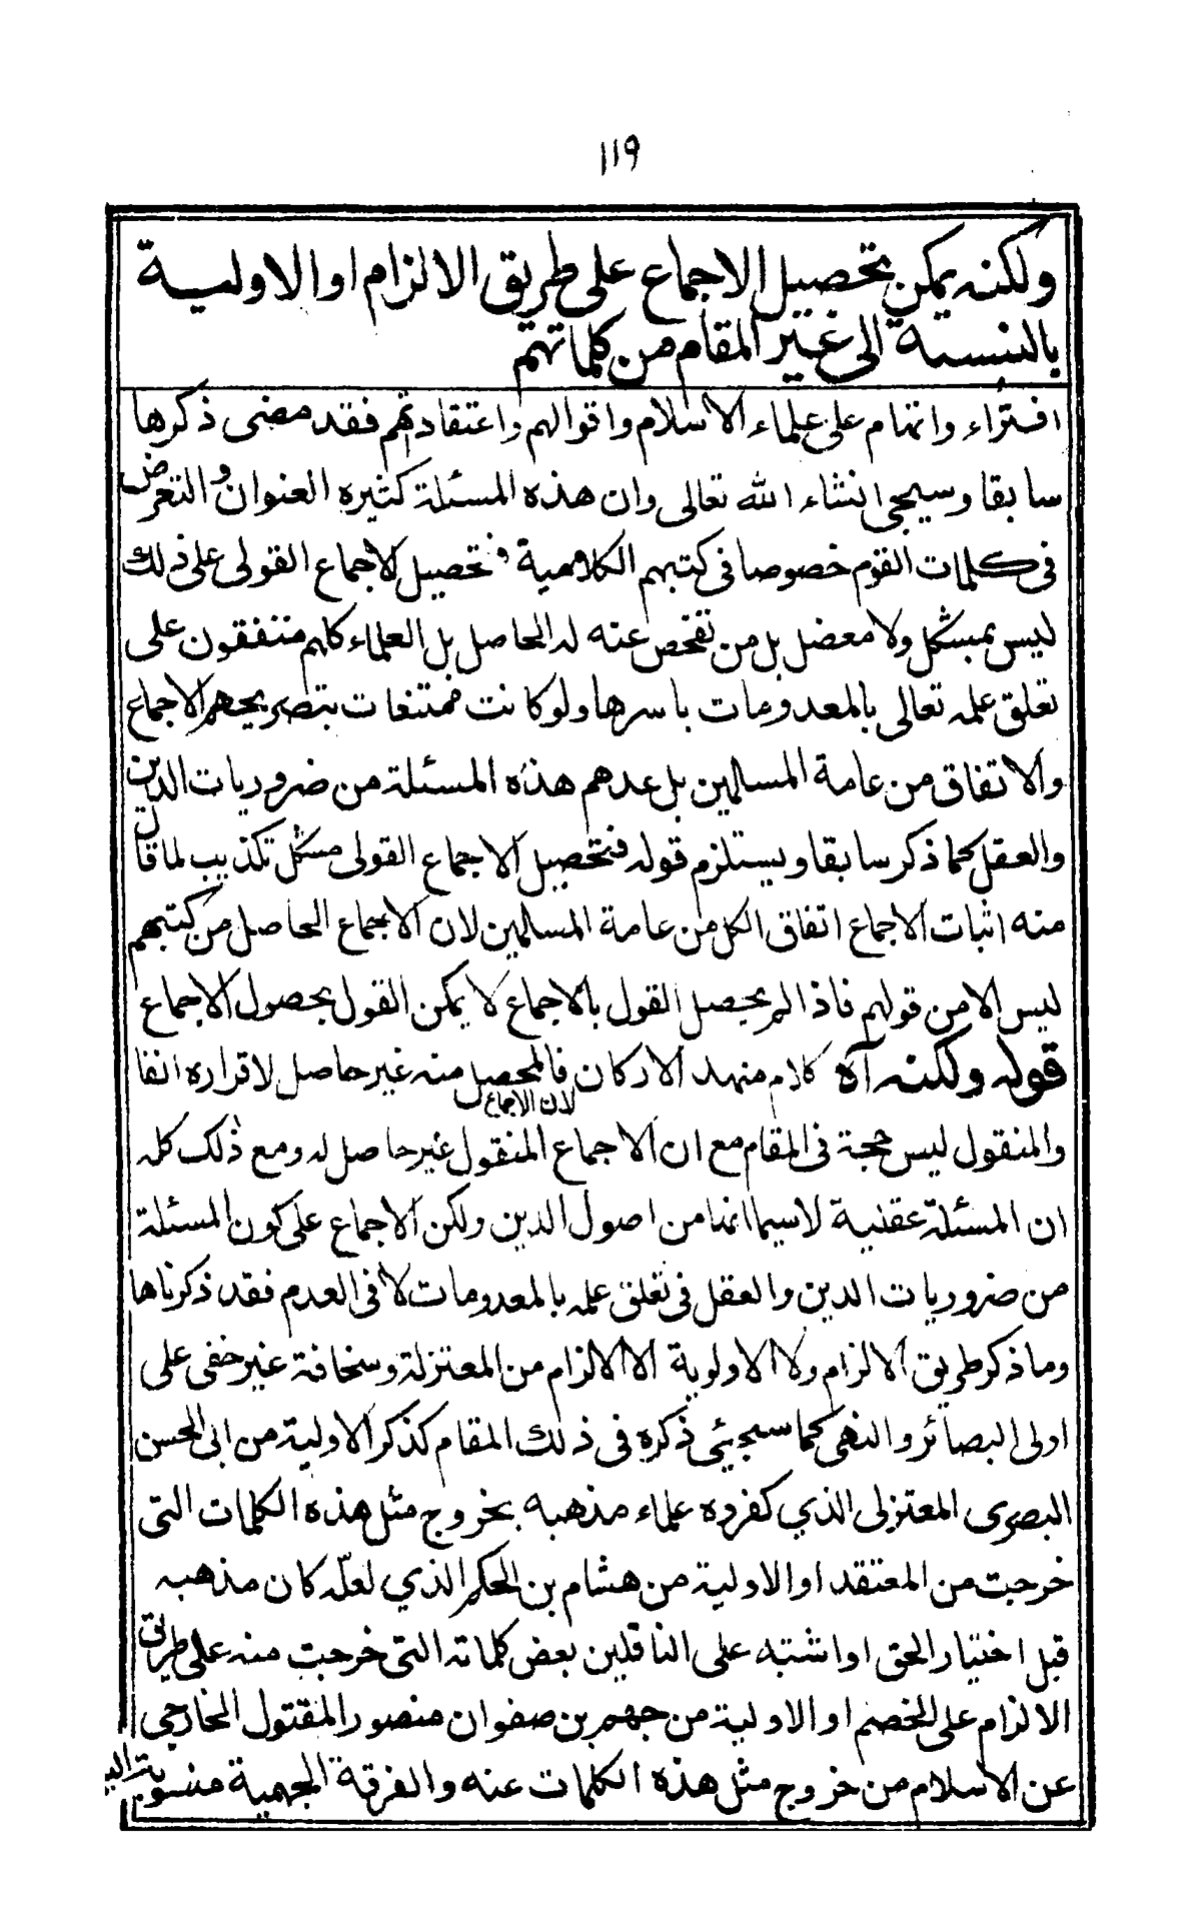 ١١٩
ولكنه يمكن تحصيل الاجماع على طريق الالزام او الاولية
بالنسبة الى غير المقام من كلماتهم
افتراء واتهام على علماء الاسلام واقوالهم واعتقاداتهم فقد مضى ذكرها
سابقا وسيجى انشاء الله تعالى وان هذه المسئلة كثيرة العنوان والتعرض
فى كلمات القوم خصوصا فى كتبهم الكلامية فتحصيل الاجماع القولى على ذلك
ليس بمشكل ولا معضل بل من تفحص عنه له الحاصل بل العلماء كلهم متفقون على
تعلق علمه تعالى بالمعدومات باسرها ولو كانت ممتنعات بتصريحهم الاجماع
والاتفاق من عامة المسلمين بل عدهم هذه المسئلة من ضروريات الدين
والعقل كما ذكر سابقا ويستلزم قوله فتحصيل الاجماع القولى مشكل تكذيب لما قال
منه اثبات الاجماع اتفاق الكل من عامة المسلمين لان الاجماع الحاصل من كتبهم
ليس الا من قولهم فاذا لم يحصل القول بالاجماع لا يمكن القول بحصول الاجماع
قوله ولكنه آه كلام منهد الاركان فالمحصل منه غير حاصل لاقراره انفا
لان الاجماع
والمنقول ليس حجة فى المقام مع ان الاجماع المنقول غير حاصل له ومع ذلك كله
ان المسئلة عقلية لاسيما انها من اصول الدين ولكن الاجماع على كون المسئلة
من ضروريات الدين والعقل فى تعلق علمه بالمعدومات لا فى العدم فقد ذكرناها
وما ذكر طريق الالزام ولا الاولوية الا الالزام من المعتزلة وسخافة غير خفى على
اولى البصائر والنهى كما سيجيئ ذكره فى ذلك المقام كذكر الاولية من ابى الحسن
البصرى المعتزلى الذي كفروه علماء مذهبه بخروج مثل هذه الكلمات التى
خرجت من المعتقد او الاولية من هشام بن الحكم الذي لعلّه كان مذهبه
قبل اختيار الحق او اشتبه على الناقلين بعض كلماته التى خرجت منه على طريق
الالزام على الخصم او الاولية من جهم بن صفوان منصور المقتول الخارجى
عن الاسلام من خروج مثل هذه الكلمات عنه والفرقة الجهمية منسوبة اليه